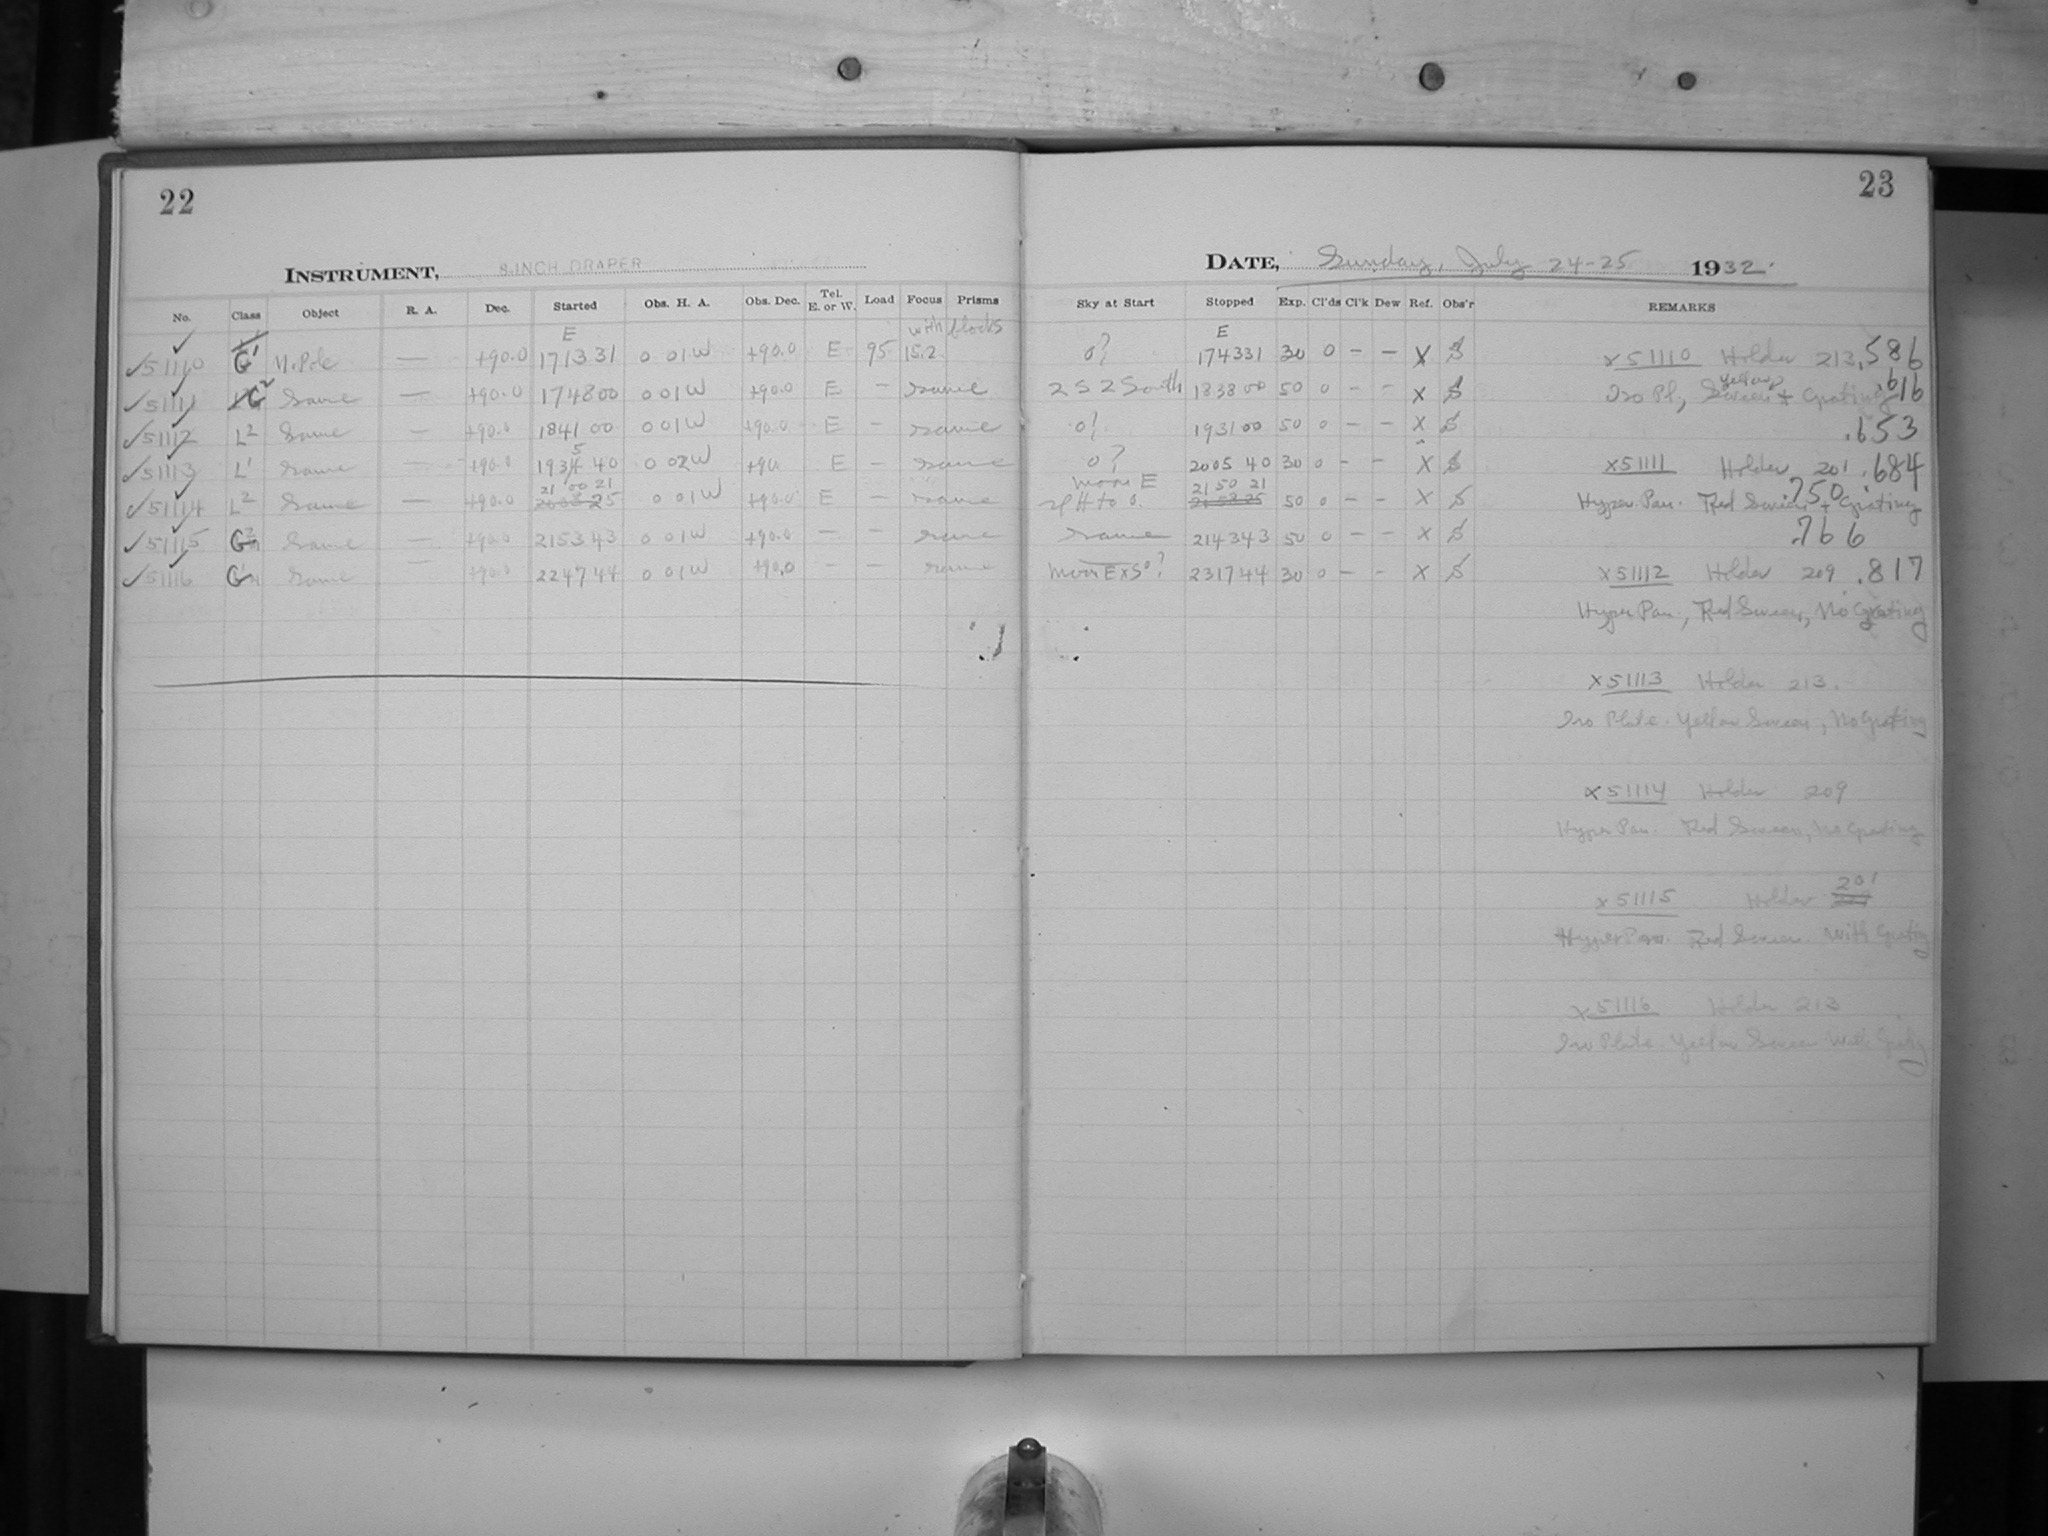 22
INSTRUMENT, 8-INCH DRAPER
No. Class Object R. A. Dec. Started Obs. H. A. Obs. Dec. Tel. E. or W. Load Focus Prisms
E with blocks
51110 G1 N. Pole — +90.0 171331 0 01W +90.0 E 95 15.2
51111 G2 Same — +90.0 174800 0 01W +90.0 E — same
51112 L2 Same — +90.0 1841 00 0 01W +90.0 E — same
51113 L1 Same — +90.0 1935 40 0 02W +90 E — same
51114 L2 Same — +90.0 21 00 21 0 01W +90.0 E — same
51115 G2 Same — +90.0 215343 0 01W +90.0 — — same
51116 G1 Same — +90.0 224744 0 01W +90.0 — — same
23
DATE, Sunday, July 24-25 1932.
Sky at Start Stopped Exp. Cl'ds Cl'k Dew Ref. Obs'r REMARKS
E
0? 174331 30 0 — — X x 51110 Holder 213 .586
2 S 2 South 183800 50 0 — — X Iso Pl, Yellow Screen + Grating .616
0! 193100 50 0 — — X .653
0? 2005 40 30 0 — — X x 51111 Holder 201 .684
moon E 21 50 21
to 0. 50 0 — — X Hyper Pan. Red Screen + Grating .750
Same 214343 50 0 — — X .766
moon E x S0? 231744 30 0 — — X x 51112 Holder 209 .817
Hyper Pan, Red Screen, No Grating
x 51113 Holder 213.
Iso Plate. Yellow Screen, No Grating
x 51114 Holder 209
Hyper Pan. Red Screen, No Grating
x 51115 Holder 201
Hyper Pan. Red Screen. With Grating
x 51116 Holder 213
Iso Plate. Yellow Screen With Grating